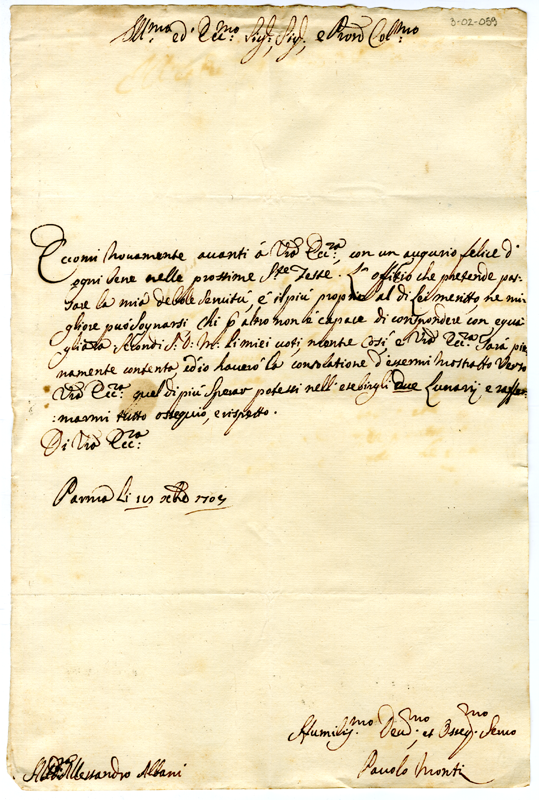 3-02-059
Ill.mo ed' Ecc.mo Sig.r, Sig.r, e Pron Col.mo
Eccomi novamente avanti à Vra Ecc.za, con un augurio felice d'
ogni bene nelle prossime S.te Feste. L' ofitio che pretende pas-
sare la mia debole servitù, è il più proprio al di Lei merito, ne mi-
gliore può sognarsi chi p altro non è capace di corispondere con egua-
glianza. Secondi S. D. M. li miei voti, mentre così e Vra Ecc.za sarà pie-
namente contenta, ed io haverò la consolatione d'essermi mostrato verso
Vra Ecc.za quel di più sperar potessi nell' esebirgli due Lunarij, e raffer-
marmi tutto ossequio, e rispetto.
Di Vra Ecc.za
Parma li 1703
Humilis.mo Dev.mo et Osseq.mo Servo
Alessandro Albani
Pavolo Monti